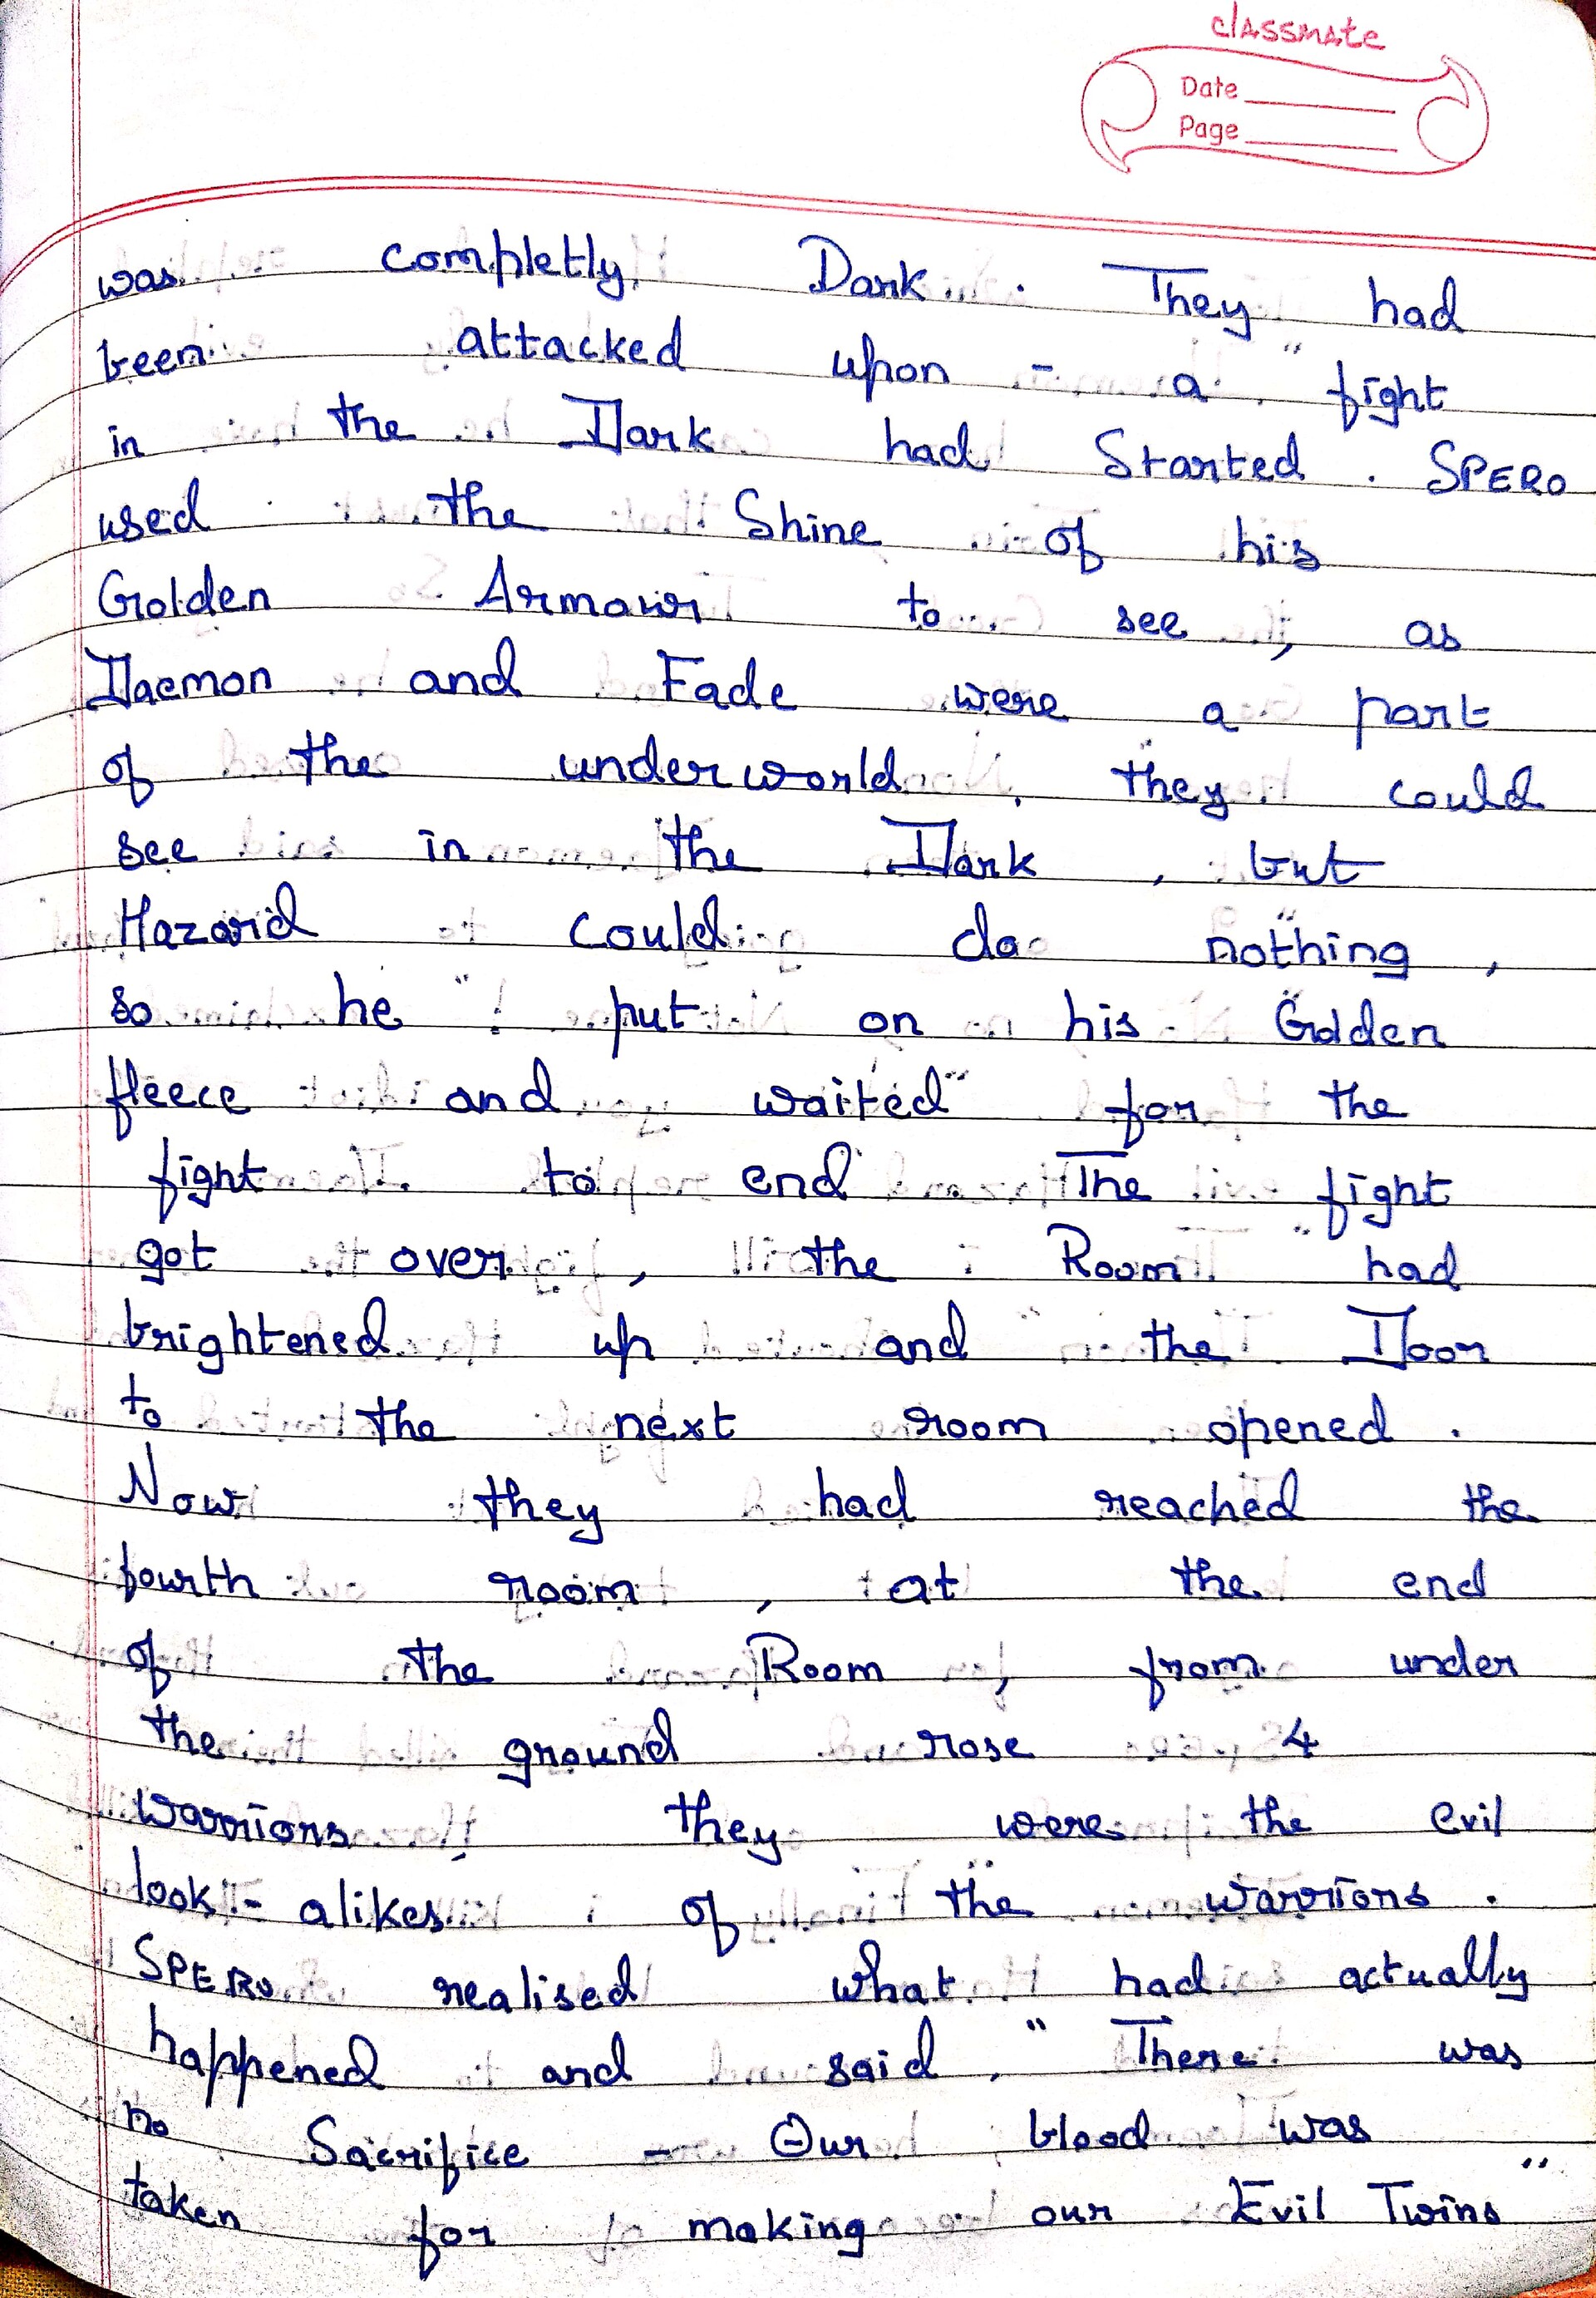 classmate
Date
Page
was completly Dark. They had
been attacked upon - a fight
in the Dark had Started. SPERO
used the Shine of his
Golden Armour to see, as
Daemon and Fade were a part
of the underworld, they could
see in the Dark, but
Hazard could do nothing,
so he put on his Golden
fleece and waited for the
fight to end The fight
got over, the Room had
brightened up and the Door
to the next room opened.
Now they had reached the
fourth room, at the end
of the Room, from under
the ground rose 4
warriors, they were the evil
look-alikes of the warriors.
SPERO realised what had actually
happened and said, "There was
no Sacrifice - Our blood was
taken for making our Evil Twins"